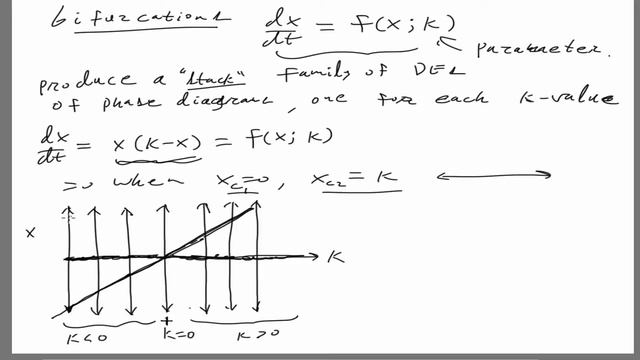 bifurcations dx/dt = f(x; K)
parameter.
produce a "stack" Family of DEs
of phase diagrams, one for each K-value
dx/dt = x(K-x) = f(x; K)
=0 when x_{c1}=0, x_{c2}=K
x
K
K<0 K=0 K>0